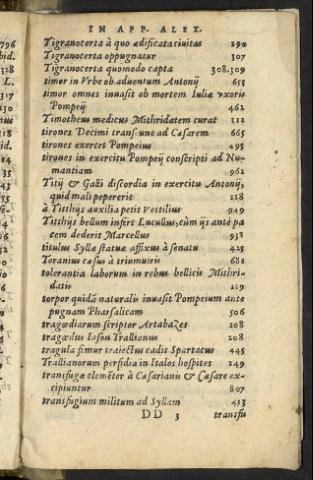 IN APP. ALEX.
Tigranocerta à quo ædificata ciuitas 290
Tigranocerta oppugnatur 307
Tigranocerta quomodo capta 308.309
timor in Vrbe ob aduentum Antonij 655
timor omnes inuasit ob mortem Iuliæ vxoris
Pompeij 462
Timotheus medicus Mithridatem curat 312
tirones Decimi transeunt ad Cæsarem 665
tirones exercet Pompeius 495
tirones in exercitu Pompeij conscripti ad Nu-
mantiam 962
Titij & Gallii discordia in exercitu Antonij,
quid mali pepererit 218
à Titthijs auxilia petit Vettilius 949
Titthijs bellum infert Lucullus, cùm ijs ante pa
cem dederit Marcellus 938
titulus Syllæ statuæ affixus à senatu 425
Toranius cæsus à triumuiris 681
tolerantia laborum in rebus bellicis Mithri-
datis 219
torpor quidā naturalis inuasit Pompeium ante
pugnam Pharsalicam 506
tragœdiarum scriptor Artabazes 208
tragœdus Iason Trallianus 208
tragula femur traiectus cadit Spartacus 445
Trallianorum perfidia in Italos hospites 249
transfugæ clemēter à Cæsarianis & Cæsare ex-
cipiuntur 807
transfugium militum ad Syllam 413
DD 3 transfu
796
bid.
328
L.
317
130
328
ibid.